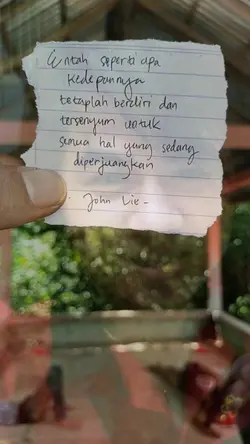 Entah seperti apa
kedepannya
tetaplah berdiri dan
tersenyum untuk
semua hal yang sedang
diperjuangkan
John Lie -